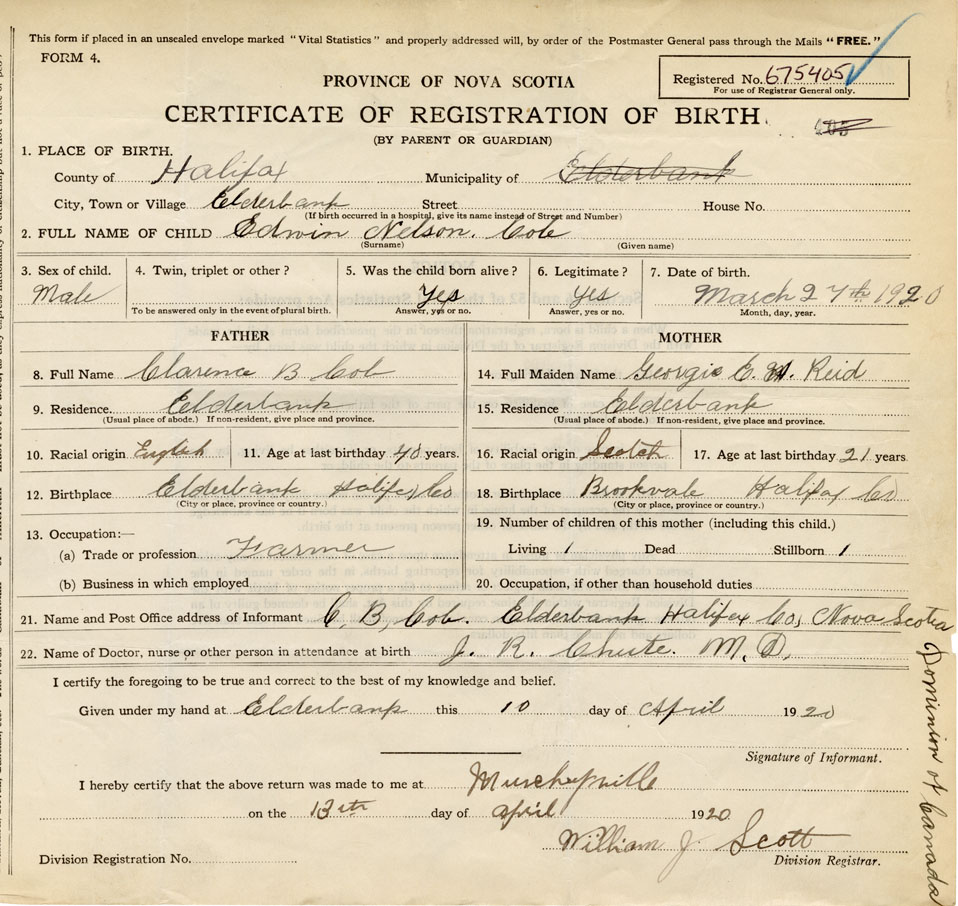 This form if placed in an unsealed envelope marked "Vital Statistics" and properly addressed will, by order of the Postmaster General pass through the Mails "FREE."
FORM 4.
Registered No. 675405
For use of Registrar General only.
PROVINCE OF NOVA SCOTIA
CERTIFICATE OF REGISTRATION OF BIRTH.
(BY PARENT OR GUARDIAN)
1. PLACE OF BIRTH.
County of Halifax Municipality of Elderbank
City, Town or Village Elderbank Street House No.
(If birth occurred in a hospital, give its name instead of Street and Number)
2. FULL NAME OF CHILD Edwin Nelson. Cole
(Surname) (Given name)
3. Sex of child. 4. Twin, triplet or other? 5. Was the child born alive? 6. Legitimate? 7. Date of birth.
Male Yes Yes March 27th 1920
To be answered only in the event of plural birth. Answer, yes or no. Answer, yes or no. Month, day, year.
FATHER MOTHER
8. Full Name Clarence B Cole 14. Full Maiden Name Georgie E. M. Reid
9. Residence. Elderbank 15. Residence Elderbank
(Usual place of abode.) If non-resident, give place and province. (Usual place of abode.) If non-resident, give place and province.
10. Racial origin English 11. Age at last birthday 40 years. 16. Racial origin Scotch 17. Age at last birthday 21 years.
12. Birthplace Elderbank Halifax Co 18. Birthplace Brookvale Halifax Co
(City or place, province or country.) (City or place, province or country.)
13. Occupation:— 19. Number of children of this mother (including this child.)
(a) Trade or profession Farmer Living 1 Dead Stillborn 1
(b) Business in which employed 20. Occupation, if other than household duties
21. Name and Post Office address of Informant C, B, Cole. Elderbank Halifax Co, Nova Scotia
Dominion of Canada
22. Name of Doctor, nurse or other person in attendance at birth J. R. Chute. M, D,
I certify the foregoing to be true and correct to the best of my knowledge and belief.
Given under my hand at Elderbank this 10 day of April 1920
Signature of Informant.
I hereby certify that the above return was made to me at
on the 13th day of April 1920
William J. Scott
Division Registration No. Division Registrar.